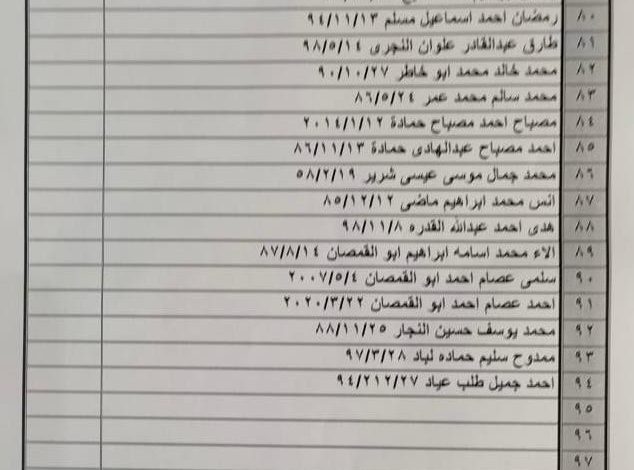 ٨٠ رمضان احمد اسماعيل مسلم ٩٤/١١/١٣
٨١ طارق عبدالقادر علوان النجرى ٩٨/٥/١٤
٨٢ محمد خالد محمد ابو خاطر ٩٠/١٠/٢٧
٨٣ محمد سالم محمد عمر ٨٦/٥/٢٤
٨٤ مصباح احمد مصباح حمادة ٢٠١٤/١/١٢
٨٥ احمد مصباح عبدالهادى حمادة ٨٦/١١/١٣
٨٦ محمد جمال موسى عيسى شرير ٥٨/٢/١٩
٨٧ انس محمد ابراهيم ماضى ٨٥/١٢/١٢
٨٨ هدى احمد عبدالله القدره ٩٨/١١/٨
٨٩ الاء محمد اسامه ابراهيم ابو القمصان ٨٧/٨/١٤
٩٠ سلمى عصام احمد ابو القمصان ٢٠٠٧/٥/٤
٩١ احمد عصام احمد ابو القمصان ٢٠٢٠/٣/٢٢
٩٢ محمد يوسف حسين النجار ٨٨/١١/٢٥
٩٣ ممدوح سليم حماده لباد ٩٧/٣/٢٨
٩٤ احمد جميل طلب عياد ٩٤/٢١٢/٢٧
٩٥
٩٦
٩٧